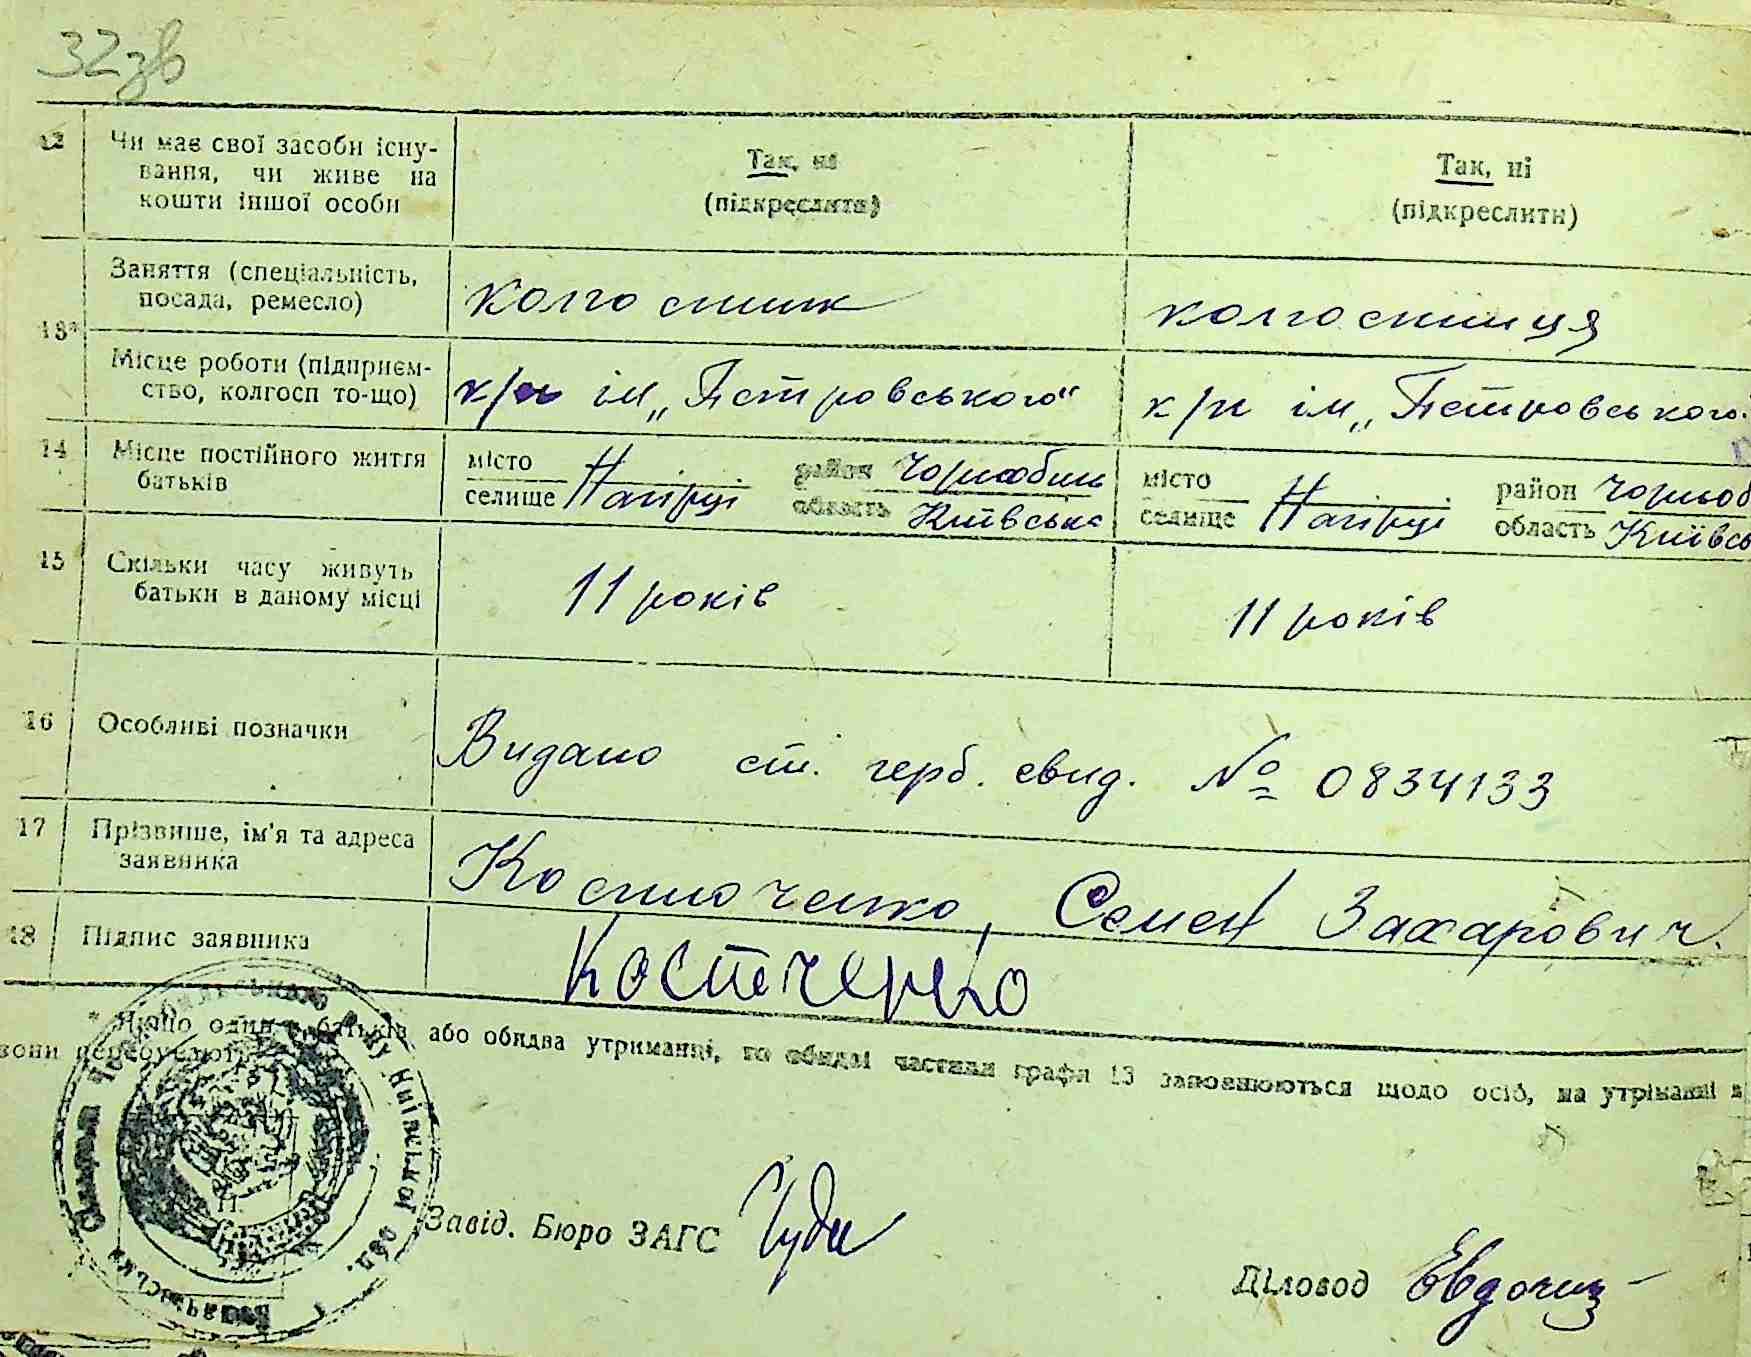 32зв
12 Чи має свої засоби існу-
вання, чи живе на
кошти іншої особи
Так, ні
(підкреслити)
Так, ні
(підкреслити)
13*
Заняття (спеціальність,
посада, ремесло)
колгоспник
колгоспниця
Місце роботи (підприєм-
ство, колгосп то-що)
к/г ім „Петровського“
к/г ім „Петровського
14 Місце постійного життя
батьків
місто
селище Нагірці
район Чорнобиль
область Київська
місто
селище Нагірці
район Чорноб
область Київсь
15 Скільки часу живуть
батьки в даному місці
11 років
11 років
16 Особливі позначки
Видано ст. герб. свид. № 0834133
17 Прізвище, ім'я та адреса
заявника
Костюченко, Семен Захарович.
18 Підпис заявника
Костюченко
* Якщо один з батьків або обидва утриманці, то обидві частини графи 13 заповнюються щодо осіб, на утриманні
вони перебувають.
Завід. Бюро ЗАГС
Діловод
Сільрада Чорнобильського р-ну Київської обл.